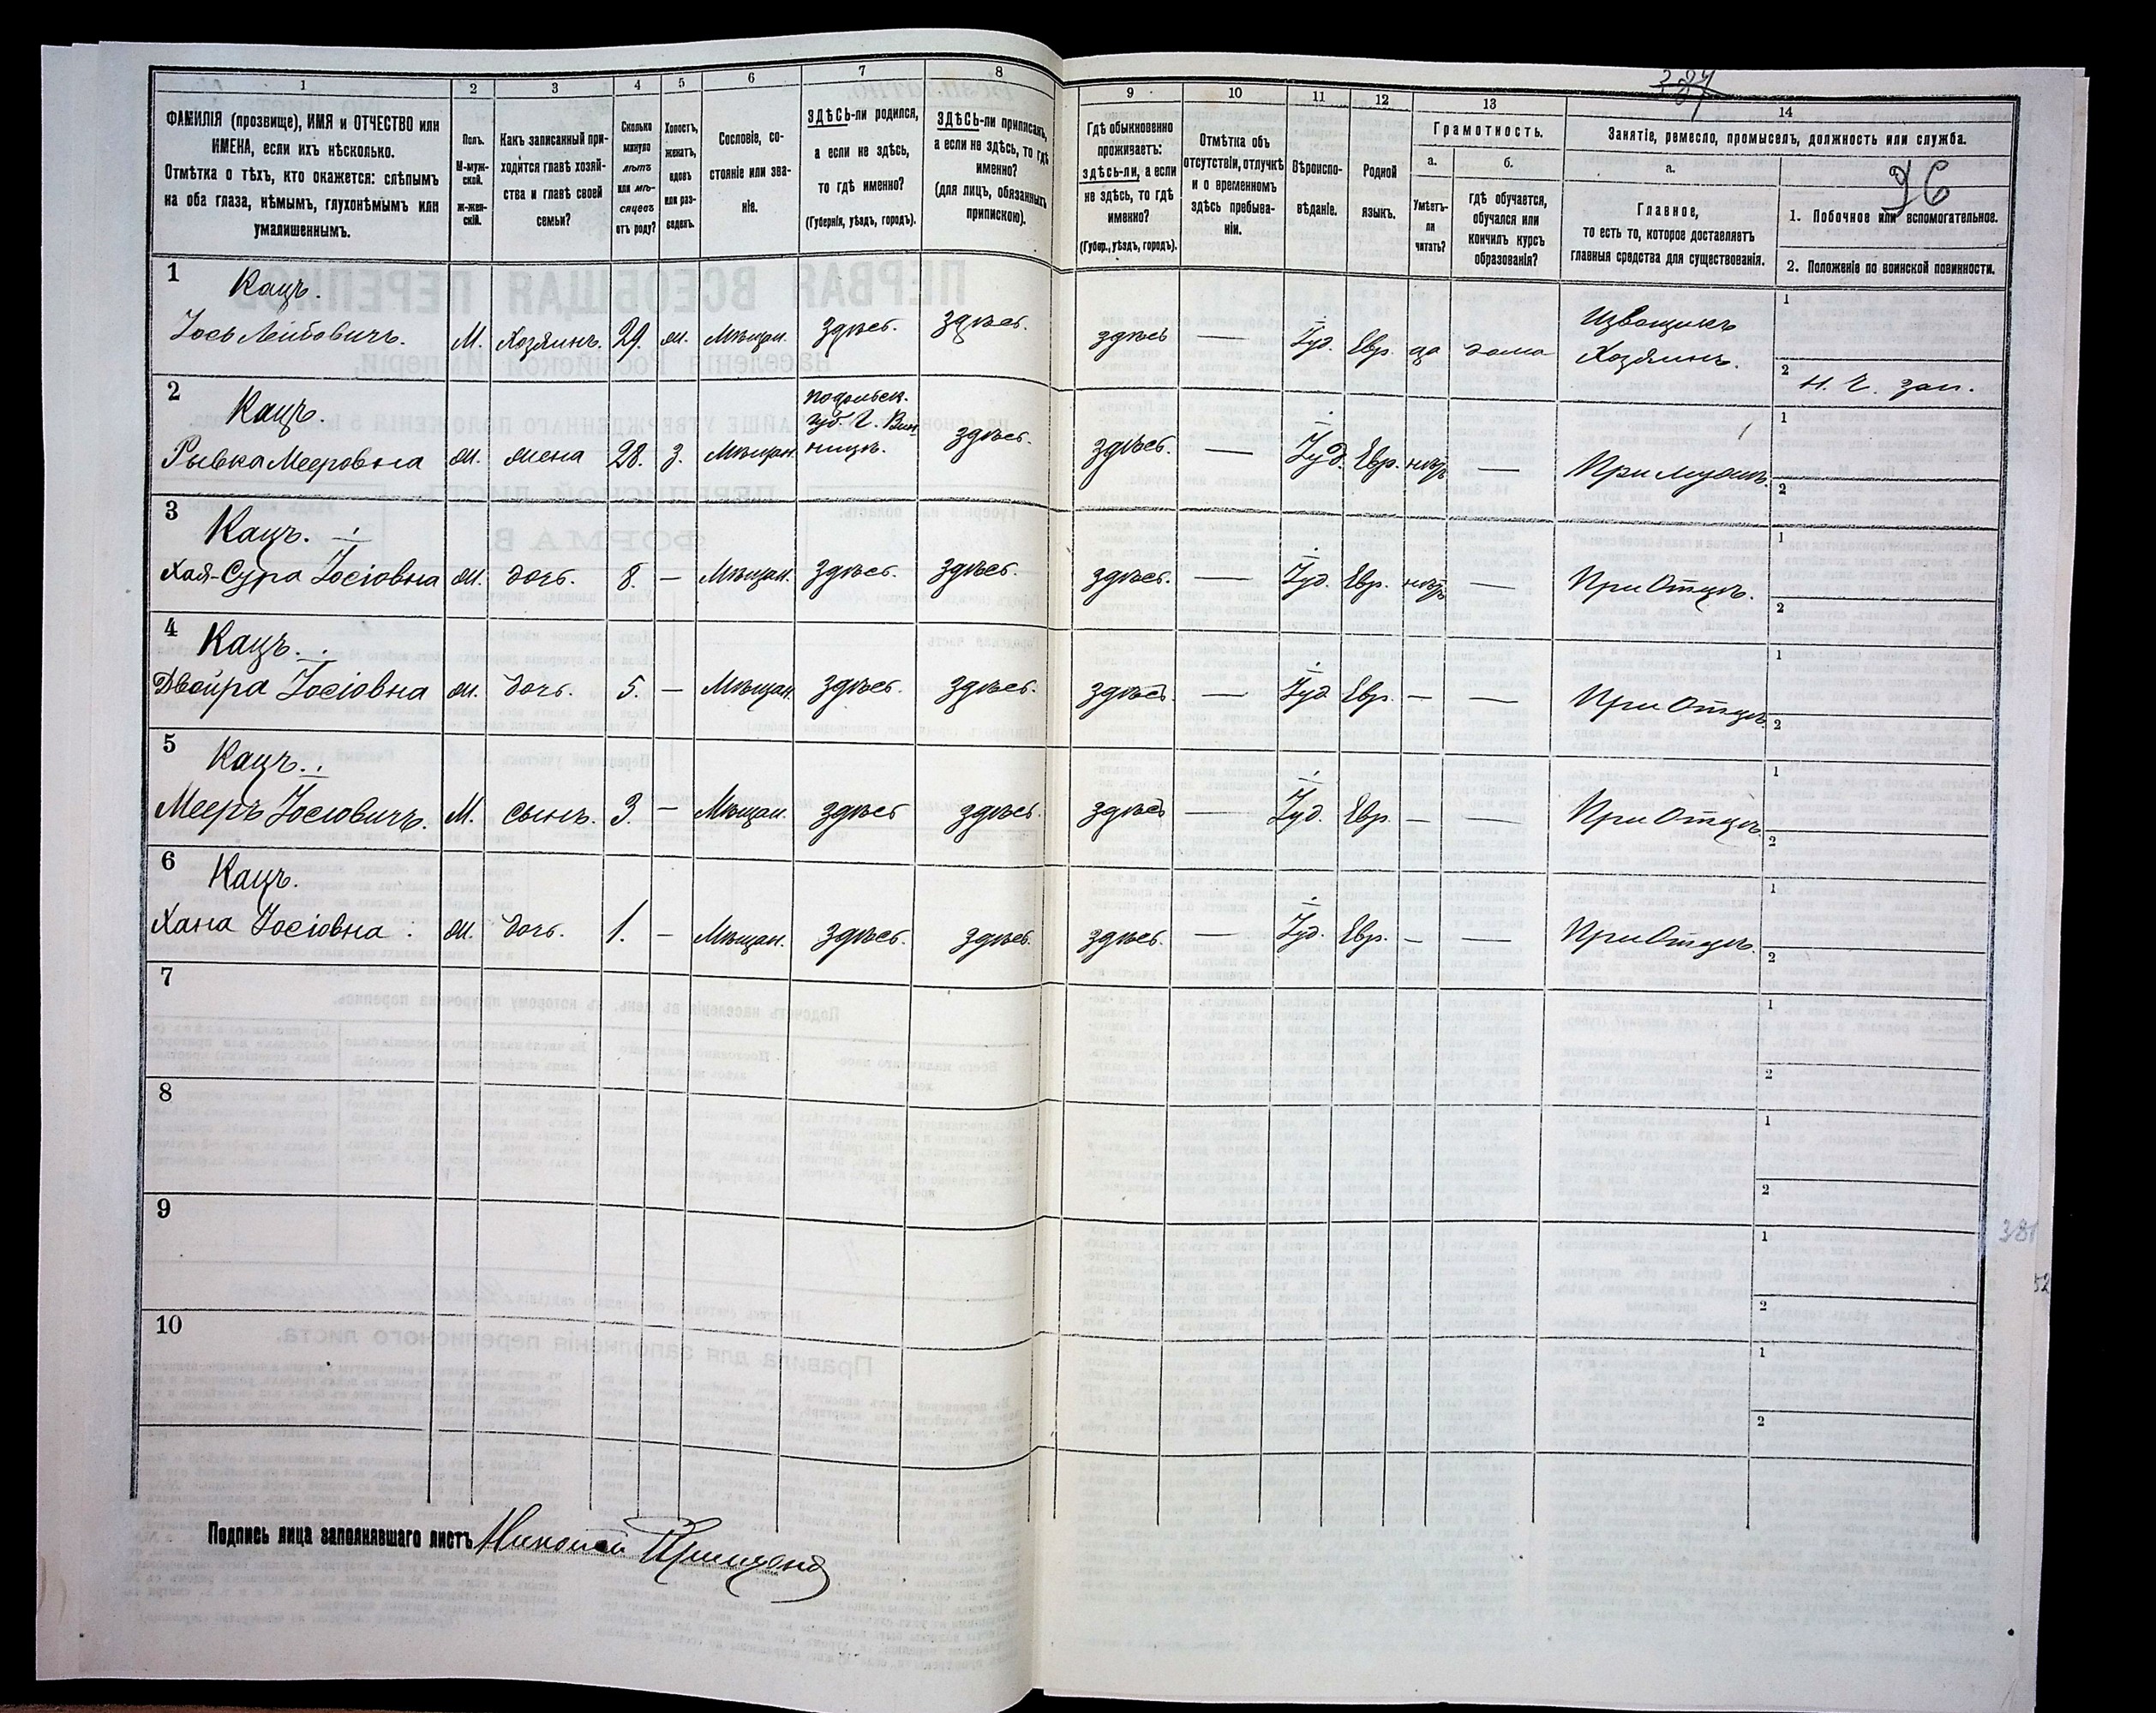 1
2
3
4
5
6
7
8
ФАМИЛІЯ (прозвище), ИМЯ и ОТЧЕСТВО или
ИМЕНА, если ихъ нѣсколько.
Отмѣтка о тѣхъ, кто окажется: слѣпымъ
на оба глаза, нѣмымъ, глухонѣмымъ или
умалишеннымъ.
Полъ.
М-муж-
ской.
ж-жен-
скій.
Какъ записанный при-
ходится главѣ хозяй-
ства и главѣ своей
семьи?
Сколько
минуло
лѣтъ
или мѣ-
сяцевъ
отъ роду?
Холостъ,
женатъ,
вдовъ
или раз-
веденъ.
Сословіе, со-
стояніе или зва-
ніе.
ЗДѢСЬ-ли родился,
а если не здѣсь,
то гдѣ именно?
(Губернія, уѣздъ, городъ).
ЗДѢСЬ-ли приписанъ,
а если не здѣсь, то гдѣ
именно?
(для лицъ, обязанныхъ
припискою).
9
10
11
12
13
14
387
96
Гдѣ обыкновенно
проживаетъ:
здѣсь-ли, а если
не здѣсь, то гдѣ
именно?
(Губер., уѣздъ, городъ).
Отмѣтка объ
отсутствіи, отлучкѣ
и о временномъ
здѣсь пребыва-
ніи.
Вѣроиспо-
вѣданіе.
Родной
языкъ.
Грамотность.
а.
б.
Умѣетъ-
ли
читать?
гдѣ обучается,
обучался или
кончилъ курсъ
образованія?
Занятіе, ремесло, промыселъ, должность или служба.
а.
Главное,
то есть то, которое доставляетъ
главныя средства для существованія.
1. Побочное или вспомогательное.
2. Положеніе по воинской повинности.
1 Кацъ.
Іось Лейбовичъ. М. Хозяинъ. 29. ж. Мѣщан. здѣсь. здѣсь. здѣсь — Іуд. Евр. да дома Извощикъ
Хозяинъ.
1
2 Н. Ч. зап.
2 Кацъ.
Рывка Мееровна ж. жена 28. З. Мѣщан. Подольск.
губ. Г. Вин-
ницъ.
здѣсь. здѣсь. — Іуд. Евр. нѣтъ — При мужѣ.
1
2
3 Кацъ.
Хая-Сура Іосіовна ж. дочь. 8 — Мѣщан. здѣсь. здѣсь. здѣсь. — Іуд. Евр. нѣтъ — При Отцѣ.
1
2
4 Кацъ.
Двойра Іосіовна ж. дочь. 5. — Мѣщан. здѣсь. здѣсь. здѣсь. — Іуд. Евр. — — При Отцѣ
1
2
5 Кацъ.
Мееръ Іосіовичъ. М. сынъ. 3. — Мѣщан. здѣсь здѣсь. здѣсь — Іуд. Евр. — — При Отцѣ.
1
2
6 Кацъ.
Хана Іосіовна ж. дочь. 1. — Мѣщан. здѣсь. здѣсь. здѣсь. — Іуд. Евр. — — При Отцѣ.
1
2
7
1
2
8
1
2
9
1
2
10
1
2
Подпись лица заполнявшаго листъ Николай